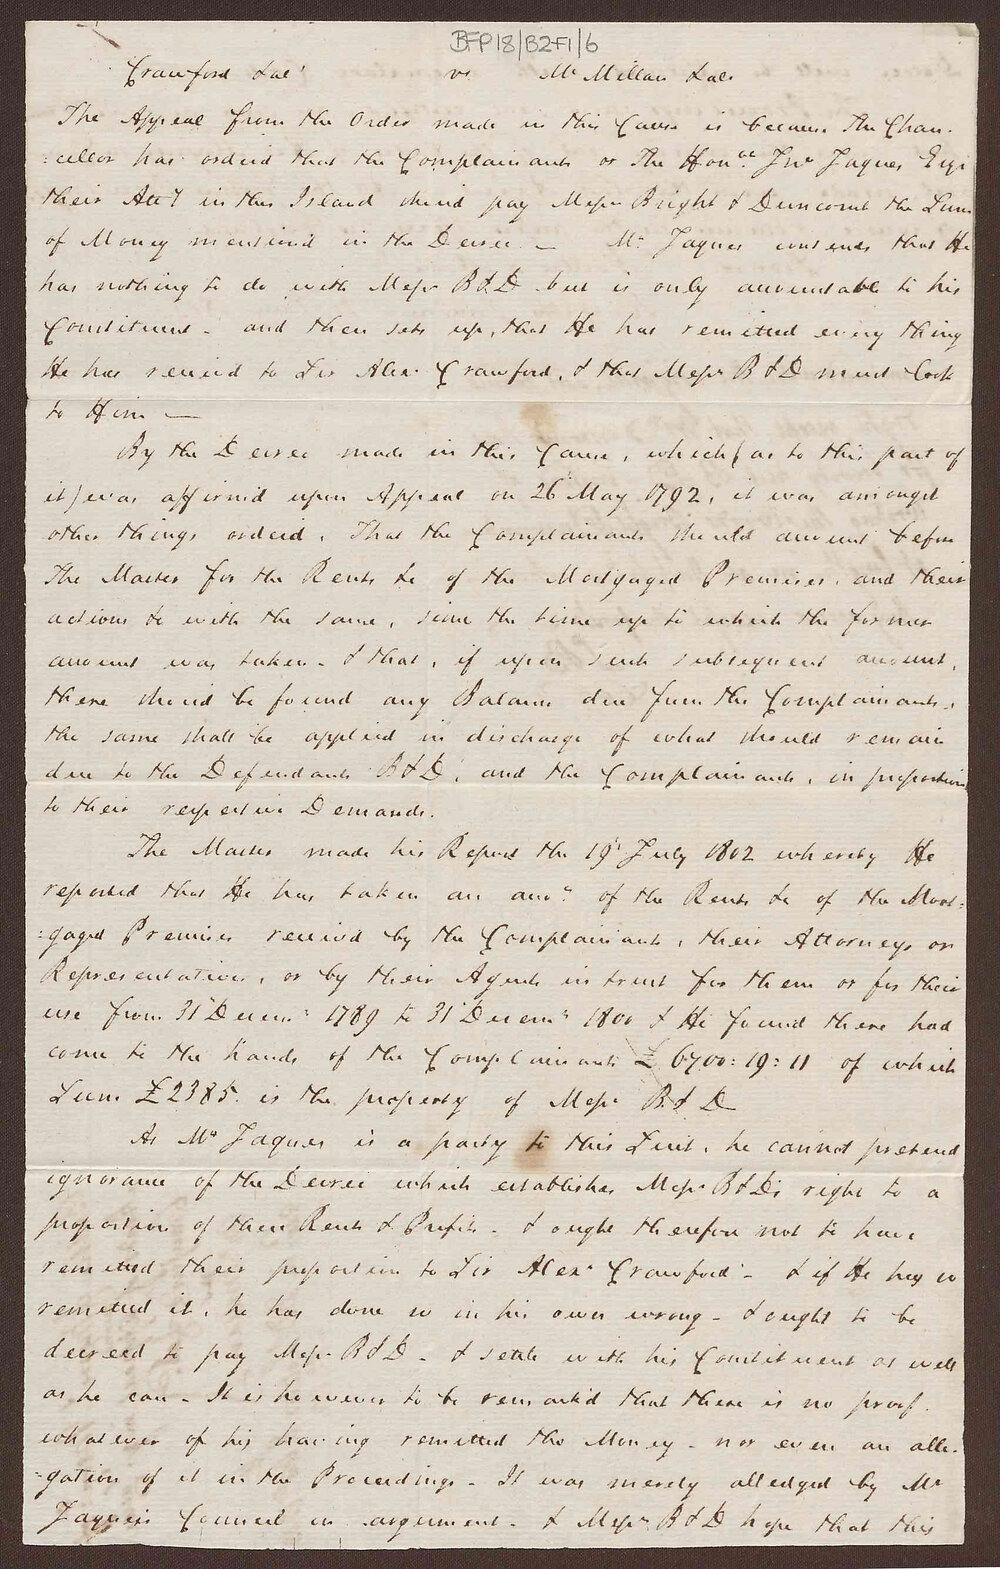 BFP18/B2-F1/6
Crawford & al vs McMillan & als
The Appeal from the Order made in this Cause is because the Chan-
:cellor has orderd that the Complainants or The Honble Jno Jaques Esqr
their Atty in this Island shoud pay Messrs Bright & Duncomb the Sum
of Money mentiond in the Decree — Mr Jaques contends that He
has nothing to do with Messrs B&D but is only accountable to his
Constituent - and then sets up, that He has remitted every thing
He has receivd to Sir Alexr Crawford, & that Messrs B&D must look
to Him —
By the Decree made in this Cause, which (as to this part of
it) was affirmd upon Appeal on 26 May 1792, it was amongst
other things orderd, That the Complainants should account before
the Master for the Rents &c of the Mortgaged Premises, and their
actions &c with the same, since the time up to which the former
account was taken - & that, if upon such subsequent account,
there shoud be found any Balance due from the Complainants,
the same shall be applied in discharge of what should remain
due to the Defendants B&D, and the Complainants, in proportion
to their respective Demands.
The Master made his Report the 19 July 1802 whereby He
reported that He has taken an acct of the Rents &c of the Mort:
:gaged Premises receivd by the Complainants, their Attorneys or
Representatives, or by their Agents in trust for them or for their
use from 31 Decemr 1789 to 31 Decemr 1800 & He found there had
come to the hands of the Complainants £6700:19:11 of which
Sum £2385 is the property of Messrs B&D
As Mr Jaques is a party to this Suit, he cannot pretend
ignorance of the Decree which establishes Messrs B&D's right to a
proportion of these Rents & Profits - & ought therefore not to have
remitted their proportion to Sir Alexr Crawford - & if He has so
remitted it, he has done so in his own wrong - & ought to be
decreed to pay Messrs B&D - & settle with his Constituent as well
as he can - It is however to be remarkd that there is no proof
whatever of his having remitted the Money - nor even an alle-
-gation of it in the Proceedings - It was merely alledged by Mr
Jaques's Council in argument - & Messrs B&D hope that this